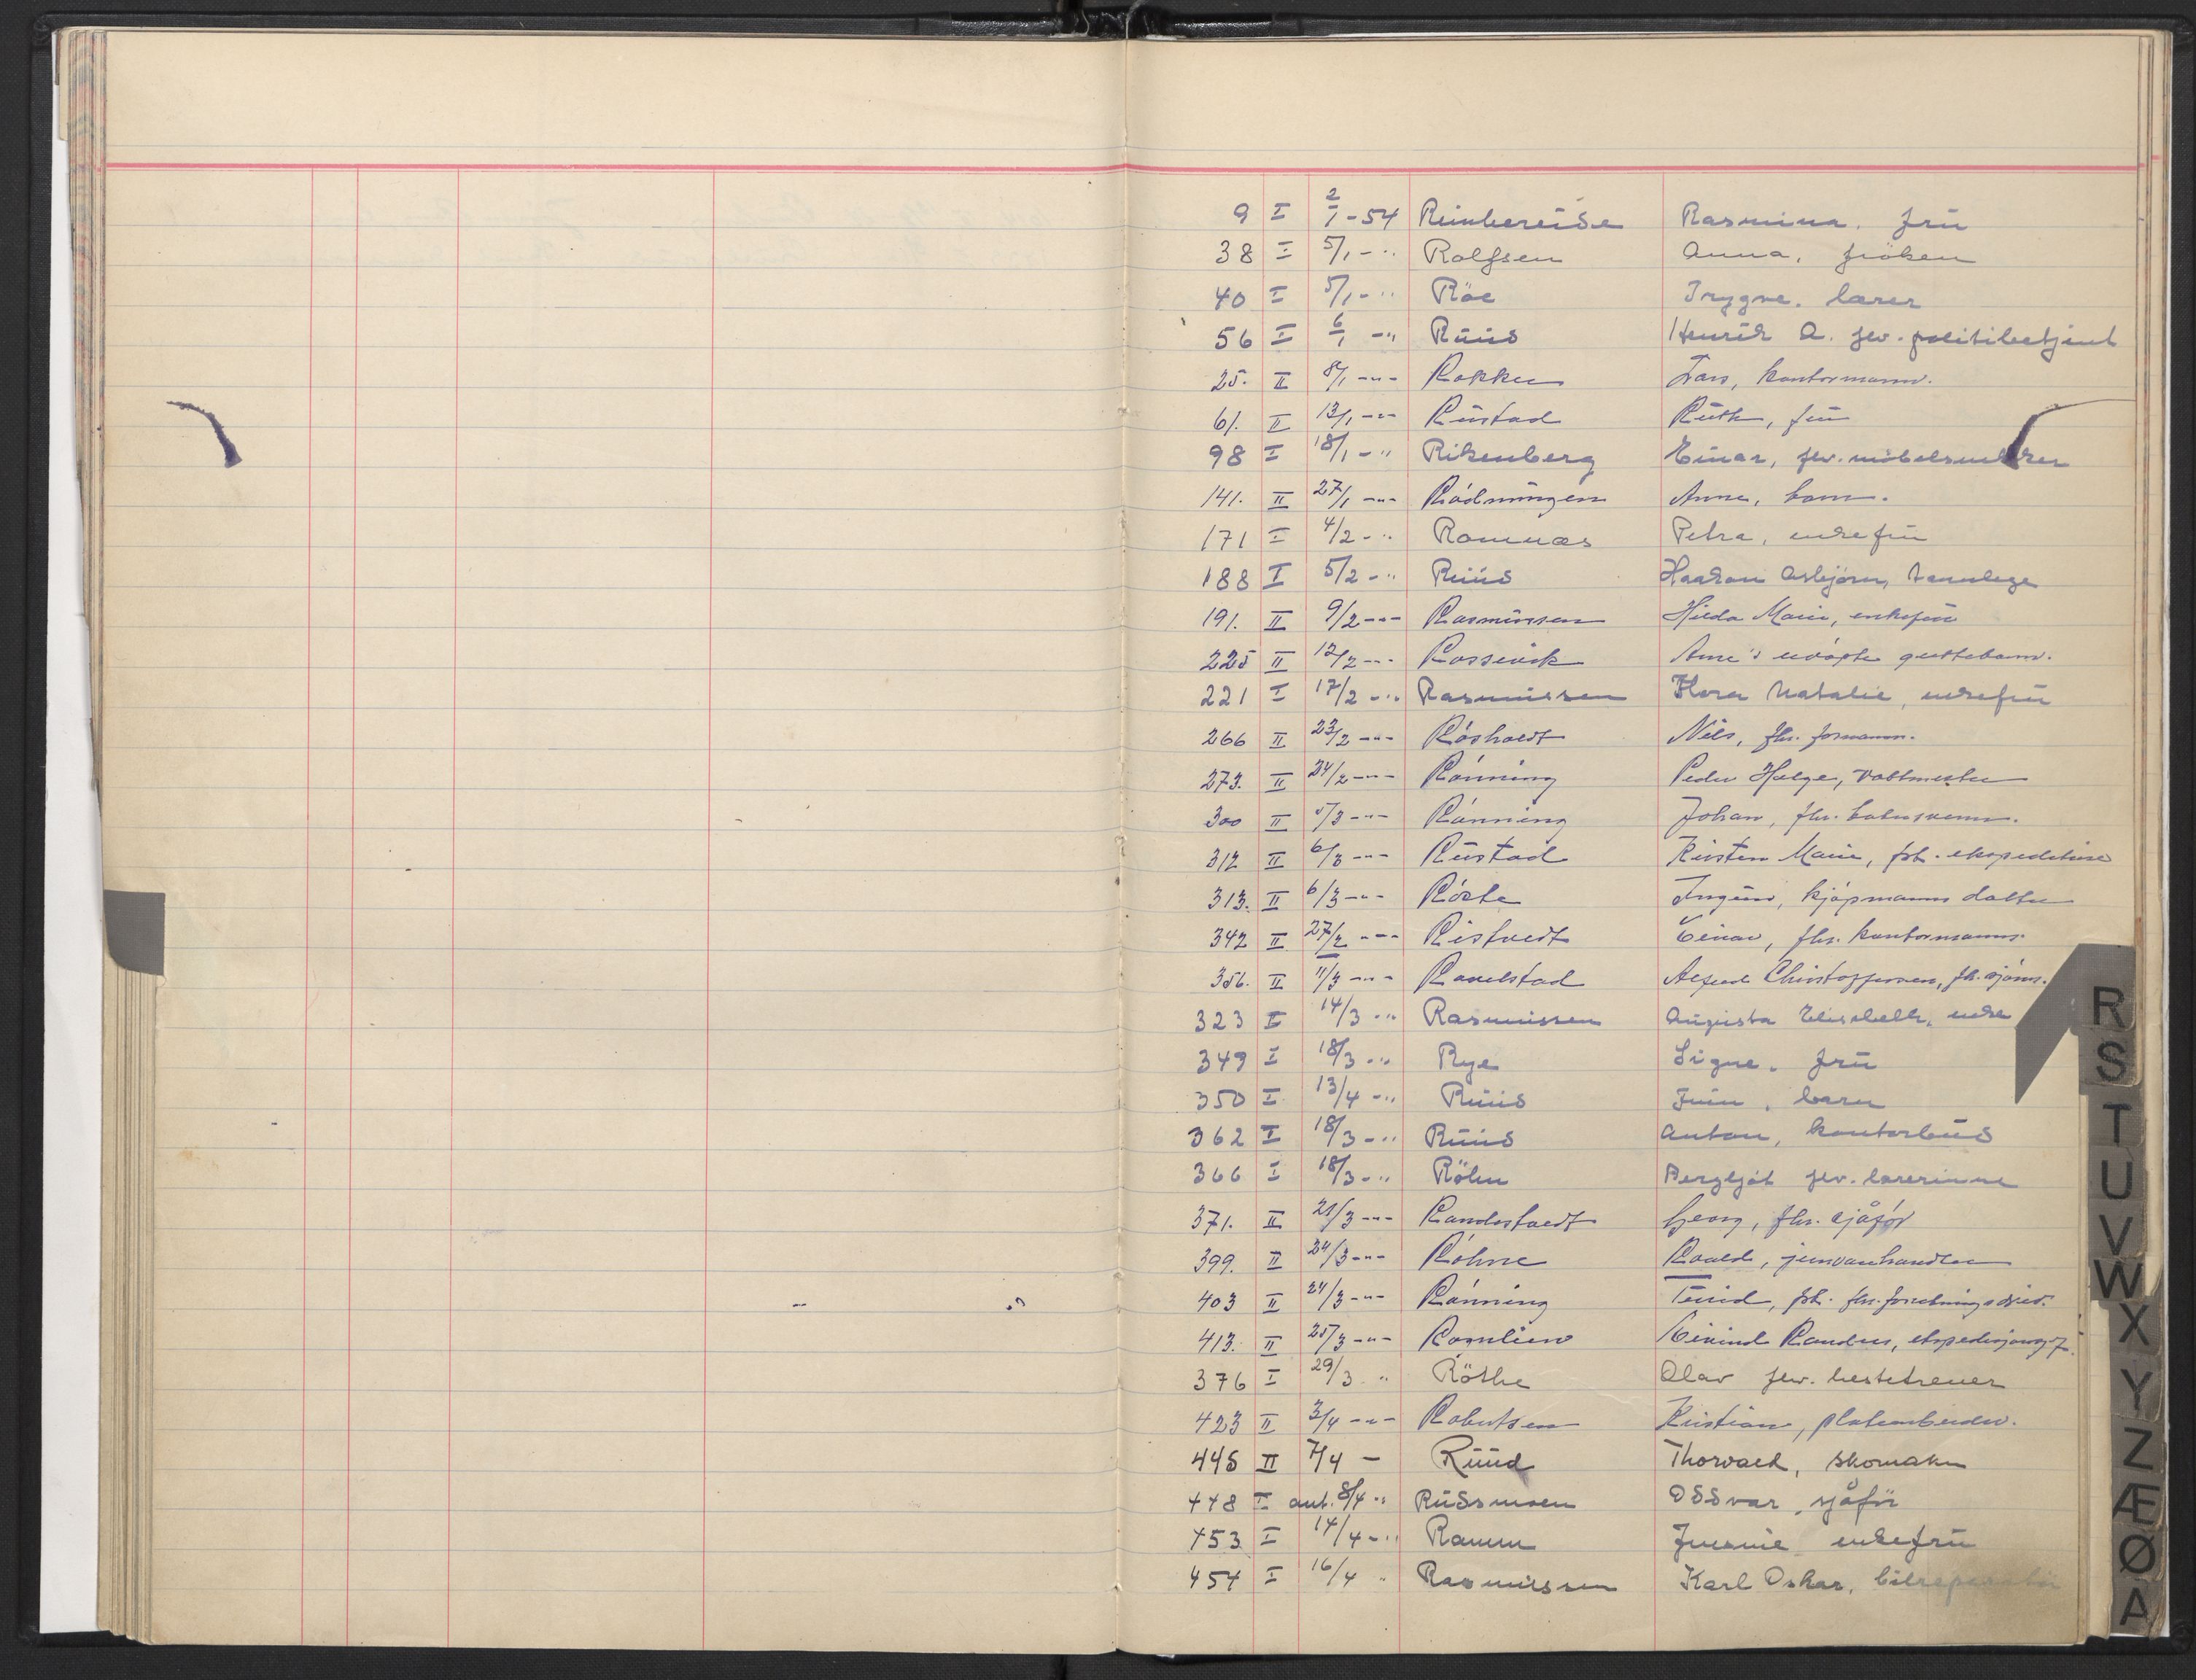 9 I 2/1 - 54 Reinhereide Rasmina, frü
38 I 5/1 - " Rolfsen Anna, fröken
40 I 5/1 - " Röe Trygve, lærer
56 I 6/1 - " Rüüd Henrik A. fhv. politibetjent
25. II 8/1 - " - Rokken Lars, kontormann.
61. II 13/1 - " - Rüstad Rüth, frü
98 I 18/1 - " Rikenberg Einar, fhv. möbelsnekker
141. II 27/1 - " - Rödningen Anne, barn.
171 I 4/2 - " Romnæs Petra, enkefrü
188 I 5/2 - " Rüüd Haakon Asbjörn, tannlege
191. II 9/2 - " - Rasmüssen Hilda Marie, enkefrü
225 II 12/2 - " - Rossevik Anne's udöpte guttebarn.
221 I 17/2 - " Rasmüssen Flora Natalie, enkefrü
266 II 23/2 - " - Röshoedt Nils, fhv. formann.
273. II 24/2 - " - Rönning Peder Helge, vaktmester
300 II 5/3 - " - Rönning Johan, fhv.
312 II 6/3 - " - Rüstad Kirsten Marie, frk. ekspeditrise
313. II 6/3 - " - Röste Ingünn, kjöpmanns datter
342 II 27/2 - " - Ristvedt Einar, fhv. kontormann.
356. II 11/3 - " - Ravelstad Alfred Christoffersen, fh. sjöm.
323 I 14/3 - " Rasmüssen Augusta Elisabeth, enke
349 I 18/3 - " Rye Signe, frü
350 I 13/4 - " Rüüd barn
362 I 18/3 - " Rüüd Anton, kontorbüd
366 I 18/3 - " Röhn Bergljót fhv. lærerinne
371. II 21/3 - " - Randstvedt Georg, fhv. sjåför
399. II 24/3 - " - Röhne Roald, jernvarehandler
403 II 24/3 - " - Rönning Türid, frk.
413. II 25/3 - " - Romlien Eivind Randers,
376 I 29/3 " Röthe Olav fhv. hestetrener
423 II 3/4 - " - Robertsen Kristian, platearbeider.
445 II 7/4 - Rüüd Thorvald, skomaker
448 I aut. 8/4 " Rüdsmoen Oddvar, sjåför
453 I 14/4 - " Ramm enkefrü
454 I 16/4 " Rasmüssen Karl Oskar, bilreparatör
R
S
T
U
V
W
X
Y
Z
Æ
Ø
A